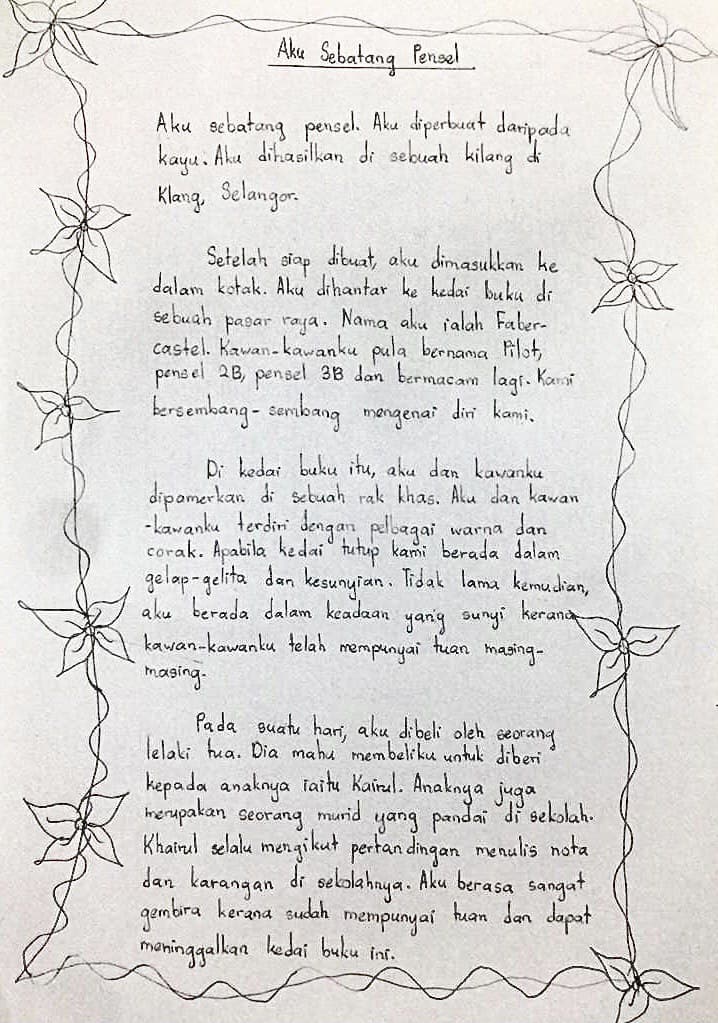 Aku Sebatang Pensel
Aku sebatang pensel. Aku diperbuat daripada
kayu. Aku dihasilkan di sebuah kilang di
Klang, Selangor.
Setelah siap dibuat, aku dimasukkan ke
dalam kotak. Aku dihantar ke kedai buku di
sebuah pasar raya. Nama aku ialah Faber-
castel. Kawan-kawanku pula bernama Pilot,
pensel 2B, pensel 3B dan bermacam lagi. Kami
bersembang-sembang mengenai diri kami.
Di kedai buku itu, aku dan kawanku
dipamerkan di sebuah rak khas. Aku dan kawan
-kawanku terdiri dengan pelbagai warna dan
corak. Apabila kedai tutup kami berada dalam
gelap-gelita dan kesunyian. Tidak lama kemudian,
aku berada dalam keadaan yang sunyi kerana
kawan-kawanku telah mempunyai tuan masing-
masing.
Pada suatu hari, aku dibeli oleh seorang
lelaki tua. Dia mahu membeliku untuk diberi
kepada anaknya iaitu Kairul. Anaknya juga
merupakan seorang murid yang pandai di sekolah.
Khairul selalu mengikut pertandingan menulis nota
dan karangan di sekolahnya. Aku berasa sangat
gembira kerana sudah mempunyai tuan dan dapat
meninggalkan kedai buku ini.